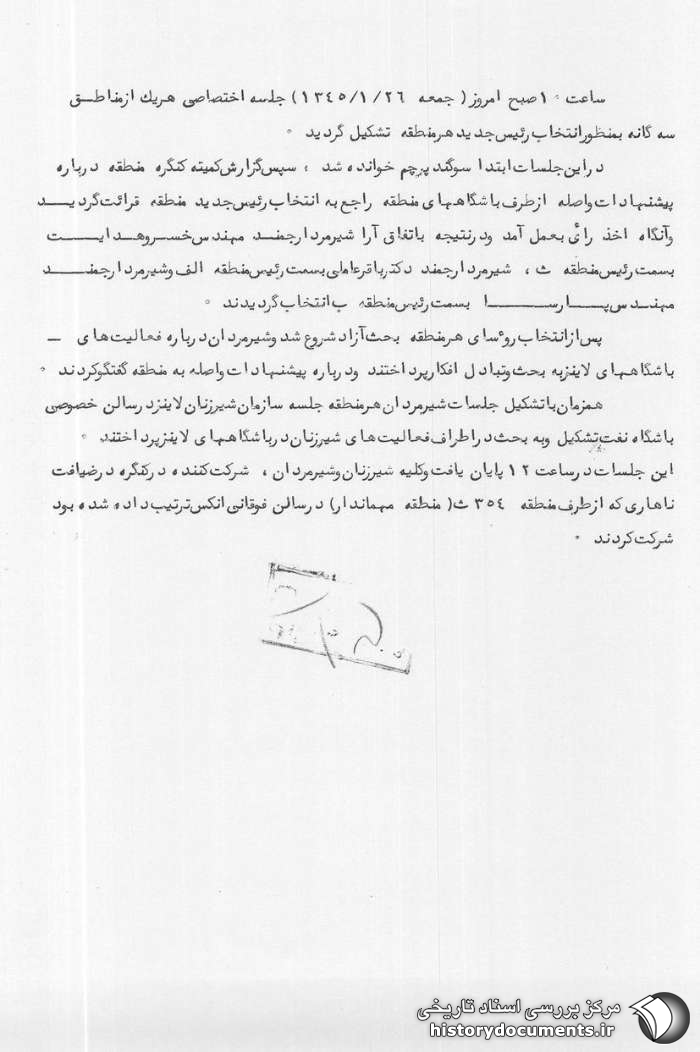 ساعت ۱۰ صبح امروز ( جمعه ۱۳٤٥/۱/۲٦ ) جلسه اختصاصی هریك از مناطق
سه گانه بمنظور انتخاب رئیس جدید هر منطقه تشکیل گردید ۰
در این جلسات ابتدا سوگند پرچم خوانده شد ، سپس گزارش کمیته کنگره منطقه درباره
پیشنهادات واصله از طرف باشگاههای منطقه راجع به انتخاب رئیس جدید منطقه قرائت گردید
وآنگاه اخذ رأی بعمل آمد ودر نتیجه باتفاق آرا شیرمرد ارجمند مهندس خسرو هدایت
بسمت رئیس منطقه ث ، شیرمرد ارجمند دکتر باقر عاملی بسمت رئیس منطقه الف وشیرمرد ارجمند
مهندس پارسا بسمت رئیس منطقه ب انتخاب گردیدند ۰
پس از انتخاب روٴسای هر منطقه بحث آزاد شروع شد وشیرمردان درباره فعالیت های ـ
باشگاههای لاینز به بحث وتبادل افکار پرداختند ودرباره پیشنهادات واصله به منطقه گفتگو کردند ۰
همزمان با تشکیل جلسات شیرمردان هر منطقه جلسه سازمان شیرزنان لاینز در سالن خصوصی
باشگاه نفت تشکیل وبه بحث در اطراف فعالیت های شیرزنان در باشگاههای لاینز پرداختند ۰
این جلسات در ساعت ۱۲ پایان یافت وکلیه شیرزنان وشیرمردان ، شرکت کننده در کنگره در ضیافت
ناهاری که از طرف منطقه ۳٥٤ ث ( منطقه مهماندار) در سالن فوقانی انکس ترتیب داده شده بود
شرکت کردند ۰
مرکز بررسی اسناد تاریخی
historydocuments.ir